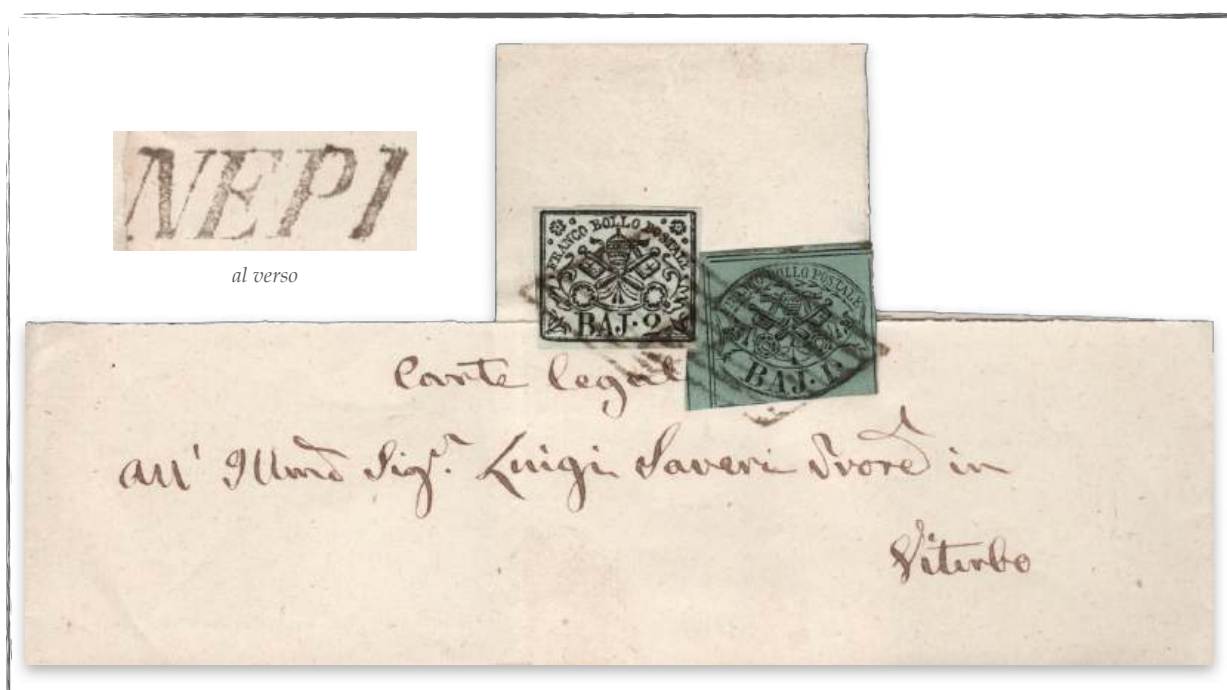 NEPI
al verso
FRANCO BOLLO POSTALE
BAJ. 2
FRANCO BOLLO POSTALE
BAJ. 1.
Carte legali
All' Illmo Sigr. Luigi Saveri in
Viterbo